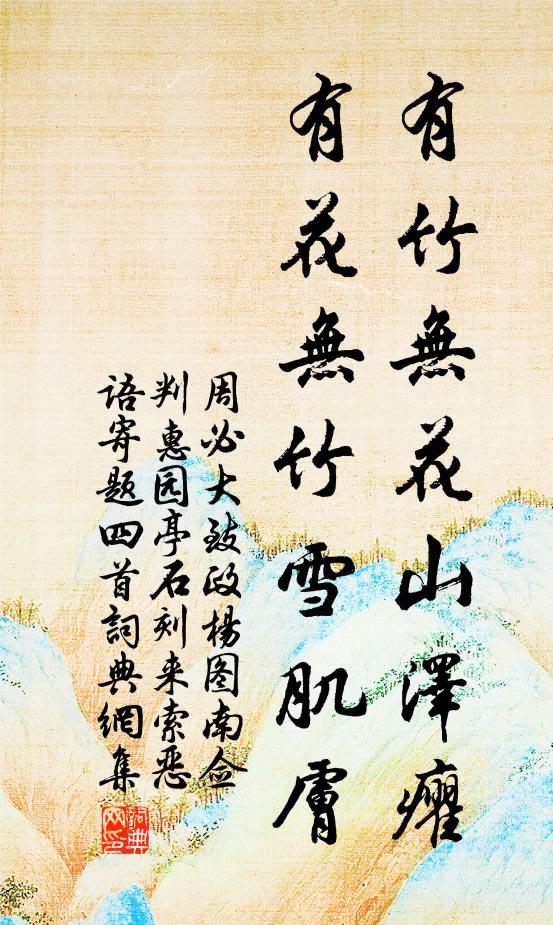 有竹無花山澤癯
有花無竹雪肌膚
周必大致政楊图南佥
判惠园亭石刻来索恶
语寄题四首詞典網集
詞典
网印